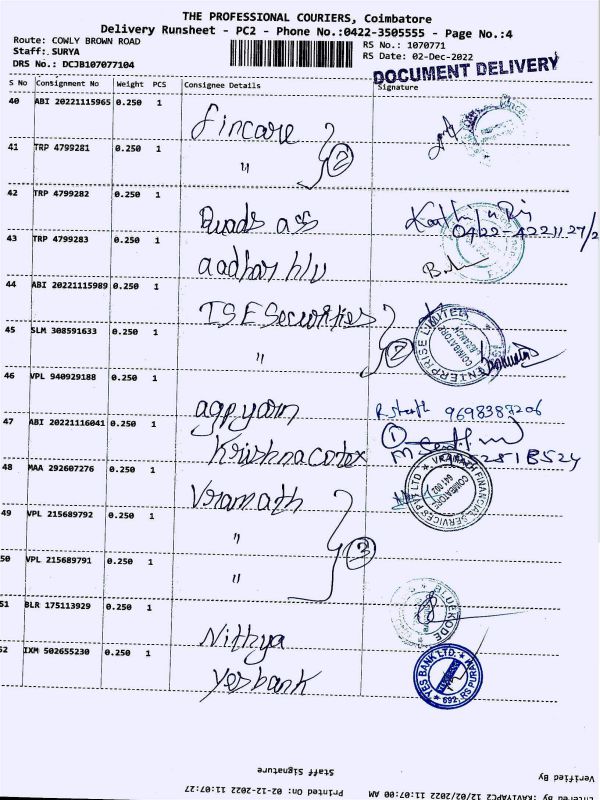 THE PROFESSIONAL COURIERS, Coimbatore
Delivery Runsheet - PC2 - Phone No.:0422-3505555 - Page No.:4
Route: COWLY BROWN ROAD
RS No.: 1070771
Staff: SURYA
RS Date: 02-Dec-2022
DRS No.: DCJB107077104
DOCUMENT DELIVERY
S No Consignment No Weight PCS Consignee Details Signature
40 ABI 20221115965 0.250 1 fincare
41 TRP 4799281 0.250 1 " 2
42 TRP 4799282 0.250 1 Quads ass
0422-4221127/2
43 TRP 4799283 0.250 1 aadhar hlv
44 ABI 20221115989 0.250 1 ISF Securities
ENTERPRISE LIMITED COIMBATORE BRANCH
45 SLM 308591633 0.250 1 " 2
46 VPL 940929188 0.250 1 agpyam
9698387206
47 ABI 20221116041 0.250 1 Krishna cotex
48 MAA 292607276 0.250 1 Vramath
VRAMATH FINANCIAL SERVICES PVT LTD COIMBATORE 641 002
49 VPL 215689792 0.250 1 "
3
50 VPL 215689791 0.250 1 "
51 BLR 175113929 0.250 1 Nithya
BLUEKODE
52 IXM 502655230 0.250 1 Yesbank
YES BANK LTD. 692, RS PURAM
Staff Signature
Verified By
Printed On: 02-12-2022 11:07:27
Entered By: KAVIYAPC2 12/02/2022 11:07:00 AM